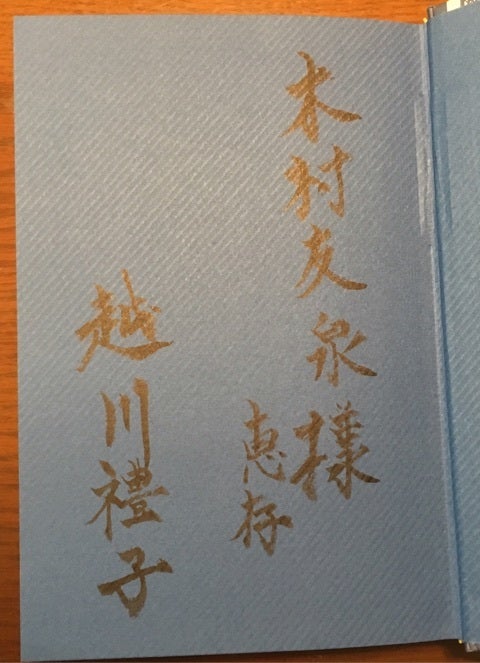 木村友泉様
恵存
越川禮子